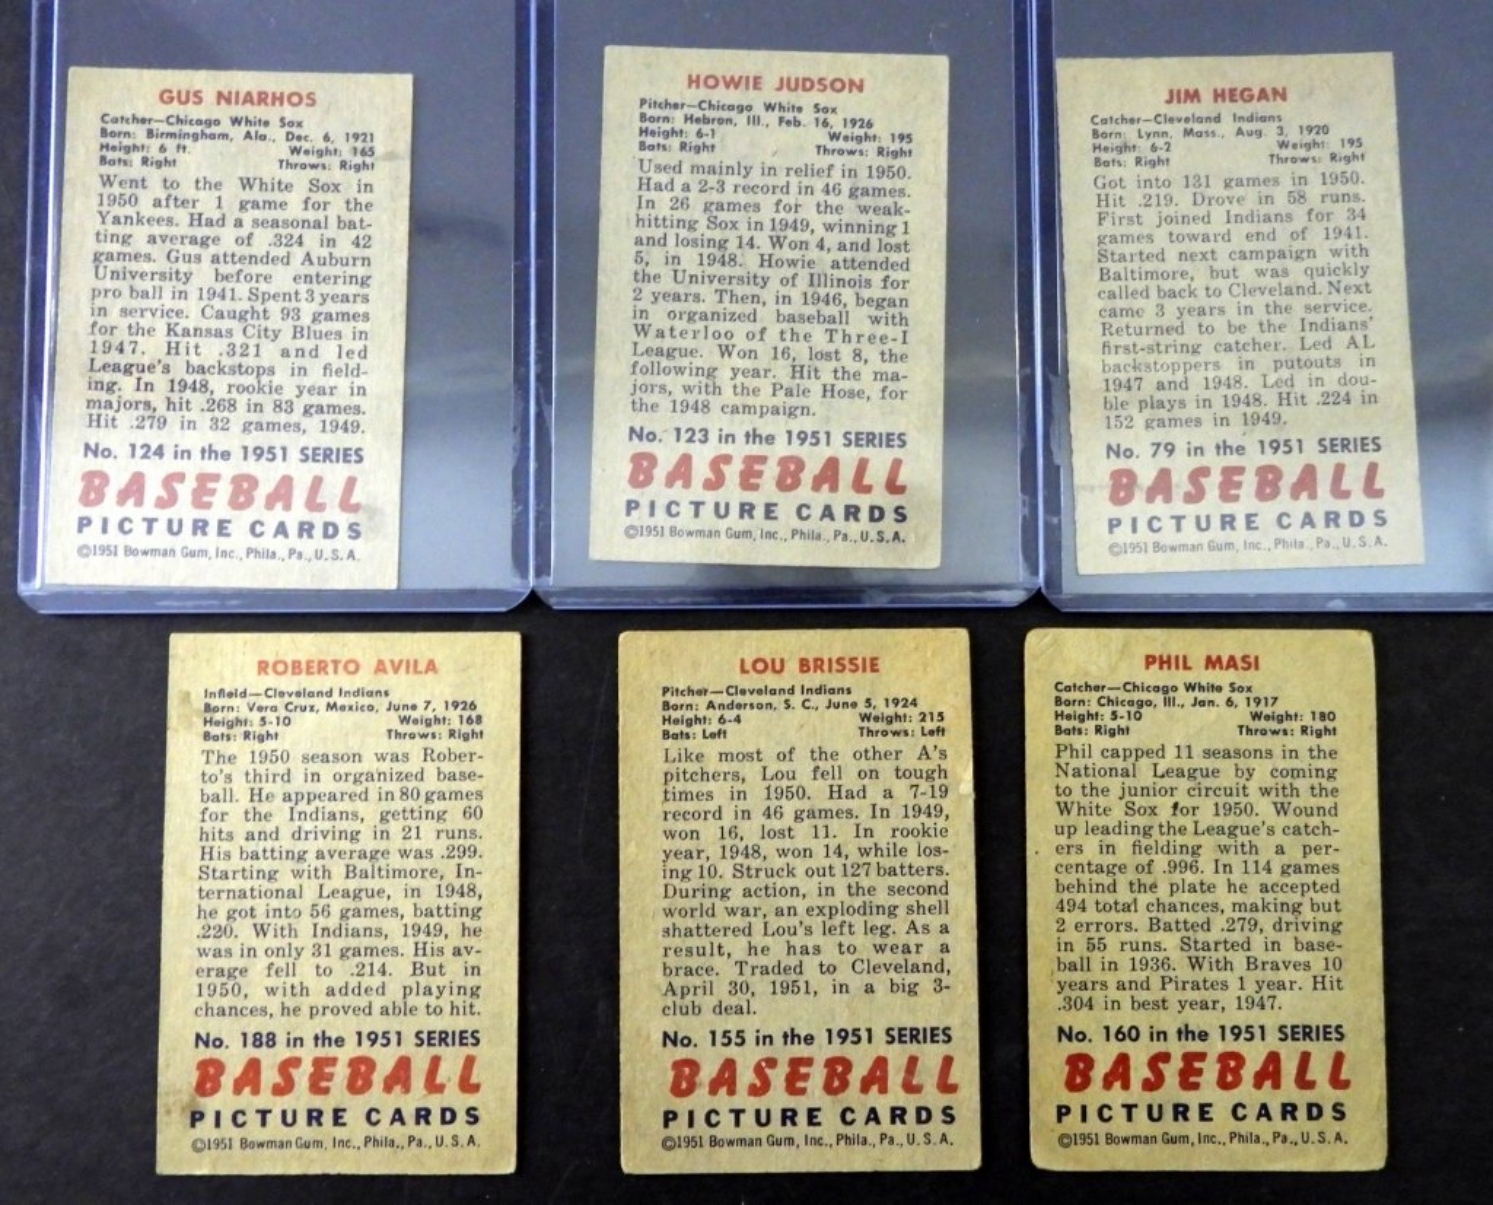 GUS NIARHOS
Catcher—Chicago White Sox
Born: Birmingham, Ala., Dec. 6, 1921
Height: 6 ft. Weight: 165
Bats: Right Throws: Right
Went to the White Sox in
1950 after 1 game for the
Yankees. Had a seasonal bat-
ting average of .324 in 42
games. Gus attended Auburn
University before entering
pro ball in 1941. Spent 3 years
in service. Caught 93 games
for the Kansas City Blues in
1947. Hit .321 and led
League's backstops in field-
ing. In 1948, rookie year in
majors, hit .268 in 83 games.
Hit .279 in 32 games, 1949.
No. 124 in the 1951 SERIES
BASEBALL
PICTURE CARDS
©1951 Bowman Gum, Inc., Phila., Pa., U.S.A.
HOWIE JUDSON
Pitcher—Chicago White Sox
Born: Hebron, Ill., Feb. 16, 1926
Height: 6-1 Weight: 195
Bats: Right Throws: Right
Used mainly in relief in 1950.
Had a 2-3 record in 46 games.
In 26 games for the weak-
hitting Sox in 1949, winning 1
and losing 14. Won 4, and lost
5, in 1948. Howie attended
the University of Illinois for
2 years. Then, in 1946, began
in organized baseball with
Waterloo of the Three-I
League. Won 16, lost 8, the
following year. Hit the ma-
jors, with the Pale Hose, for
the 1948 campaign.
No. 123 in the 1951 SERIES
BASEBALL
PICTURE CARDS
©1951 Bowman Gum, Inc., Phila., Pa., U.S.A.
JIM HEGAN
Catcher—Cleveland Indians
Born: Lynn, Mass., Aug. 3, 1920
Height: 6-2 Weight: 195
Bats: Right Throws: Right
Got into 131 games in 1950.
Hit .219. Drove in 58 runs.
First joined Indians for 34
games toward end of 1941.
Started next campaign with
Baltimore, but was quickly
called back to Cleveland. Next
came 3 years in the service.
Returned to be the Indians'
first-string catcher. Led AL
backstoppers in putouts in
1947 and 1948. Led in dou-
ble plays in 1948. Hit .224 in
152 games in 1949.
No. 79 in the 1951 SERIES
BASEBALL
PICTURE CARDS
©1951 Bowman Gum, Inc., Phila., Pa., U.S.A.
ROBERTO AVILA
Infield—Cleveland Indians
Born: Vera Cruz, Mexico, June 7, 1926
Height: 5-10 Weight: 168
Bats: Right Throws: Right
The 1950 season was Rober-
to's third in organized base-
ball. He appeared in 80 games
for the Indians, getting 60
hits and driving in 21 runs.
His batting average was .299.
Starting with Baltimore, In-
ternational League, in 1948,
he got into 56 games, batting
.220. With Indians, 1949, he
was in only 31 games. His av-
erage fell to .214. But in
1950, with added playing
chances, he proved able to hit.
No. 188 in the 1951 SERIES
BASEBALL
PICTURE CARDS
©1951 Bowman Gum, Inc., Phila., Pa., U.S.A.
LOU BRISSIE
Pitcher—Cleveland Indians
Born: Anderson, S. C., June 5, 1924
Height: 6-4 Weight: 215
Bats: Left Throws: Left
Like most of the other A's
pitchers, Lou fell on tough
times in 1950. Had a 7-19
record in 46 games. In 1949,
won 16, lost 11. In rookie
year, 1948, won 14, while los-
ing 10. Struck out 127 batters.
During action, in the second
world war, an exploding shell
shattered Lou's left leg. As a
result, he has to wear a
brace. Traded to Cleveland,
April 30, 1951, in a big 3-
club deal.
No. 155 in the 1951 SERIES
BASEBALL
PICTURE CARDS
©1951 Bowman Gum, Inc., Phila., Pa., U.S.A.
PHIL MASI
Catcher—Chicago White Sox
Born: Chicago, Ill., Jan. 6, 1917
Height: 5-10 Weight: 180
Bats: Right Throws: Right
Phil capped 11 seasons in the
National League by coming
to the junior circuit with the
White Sox for 1950. Wound
up leading the League's catch-
ers in fielding with a per-
centage of .996. In 114 games
behind the plate he accepted
494 total chances, making but
2 errors. Batted .279, driving
in 55 runs. Started in base-
ball in 1936. With Braves 10
years and Pirates 1 year. Hit
.304 in best year, 1947.
No. 160 in the 1951 SERIES
BASEBALL
PICTURE CARDS
©1951 Bowman Gum, Inc., Phila., Pa., U.S.A.